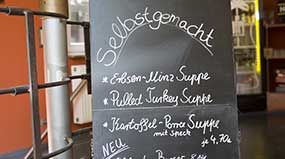 Selbstgemacht
* Erbsen-Minz Suppe
* Pulled Turkey Suppe
* Kartoffel-Porree Suppe
mit Speck
je 4,70€
NEU